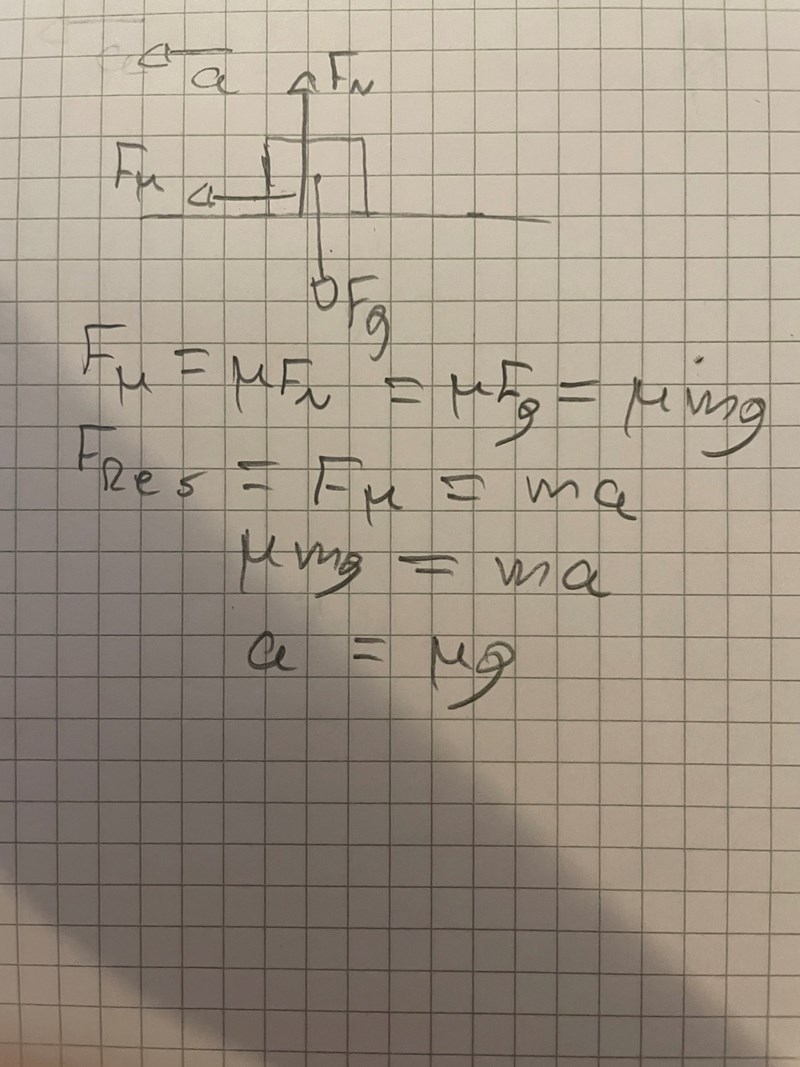 a
F_N
F_μ
F_g
F_μ = μF_N = μF_g = μmg
F_Res = F_μ = ma
μmg = ma
a = μg